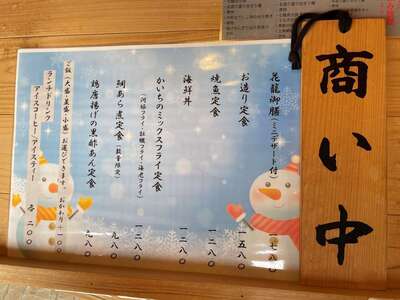 商い中
花籠御膳(ミニデザート付) 一七八〇
お造り定食 一五八〇
焼魚定食 一二八〇
海鮮丼 一二八〇
かいちのミックスフライ定食 一二八〇
(河豚フライ・牡蠣フライ・海老フライ)
鯛あら煮定食(数量限定) 九八〇
鶏唐揚げの黒酢あん定食 九八〇
ご飯(大盛・並盛・小盛)お選びできます。おかわり+一〇〇
ランチドリンク
アイスコーヒー/アイスティー 各二〇〇